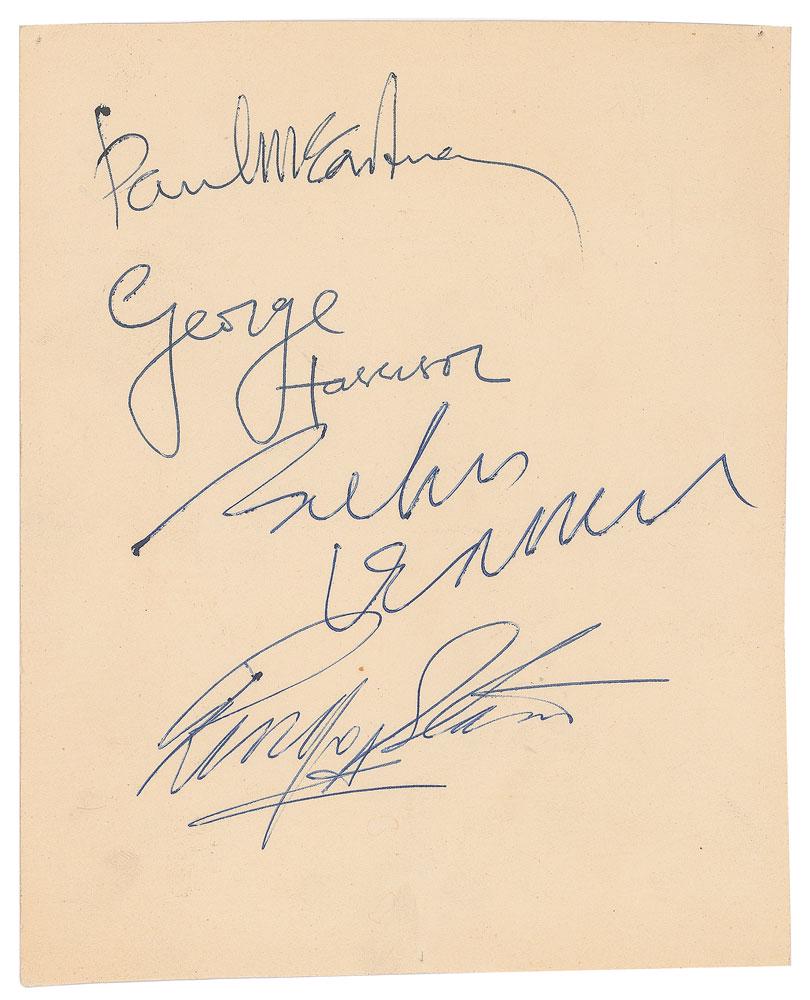 Paul McCartney
George
Harrison
John
Lennon
Ringo Starr